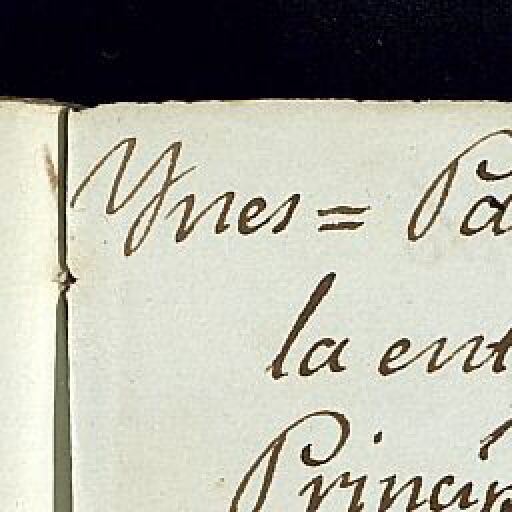 Ynes = Pa
la ent
Princip